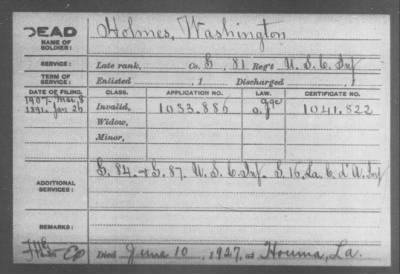 DEAD
NAME OF SOLDIER: Holmes, Washington
SERVICE: Late rank, Co. G, 81 Reg't U.S.C. Inf
TERM OF SERVICE: Enlisted , 1 Discharged , 1
DATE OF FILING. CLASS. APPLICATION NO. LAW. CERTIFICATE NO.
1907, Mar, 8
1891, Jan 26 Invalid, 1033.886 1041.822
Widow,
Minor,
ADDITIONAL SERVICES: G. 84. + G. 87. U.S.C. Inf. G. 16, La. C. d'A. Inf
REMARKS:
Died June 10, 1927, at Houma, La.